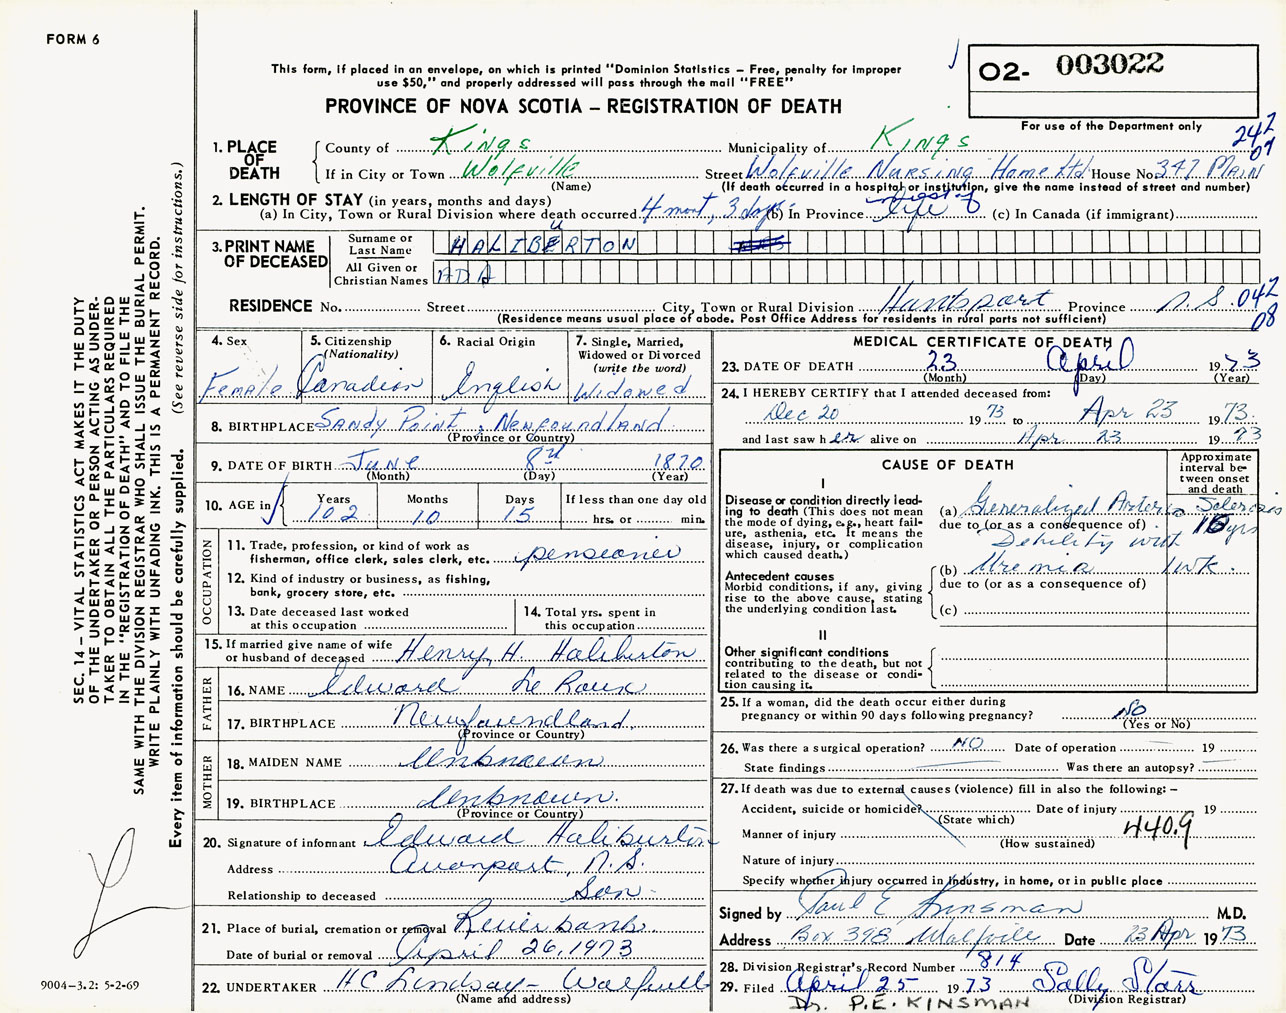 FORM 6
This form, if placed in an envelope, on which is printed "Dominion Statistics – Free, penalty for improper
use $50," and properly addressed will pass through the mail "FREE"
PROVINCE OF NOVA SCOTIA – REGISTRATION OF DEATH
O2- 003022
For use of the Department only
242
07
1. PLACE OF DEATH
County of Kings Municipality of Kings
If in City or Town Wolfville Street Wolfville Nursing Home Ltd House No. 347 MAIN
(Name) (If death occurred in a hospital or institution, give the name instead of street and number)
2. LENGTH OF STAY (in years, months and days)
(a) In City, Town or Rural Division where death occurred. 4 mont, 3 days (b) In Province most of life (c) In Canada (if immigrant)
3. PRINT NAME OF DECEASED
Surname or Last Name HALIBURTON
All Given or Christian Names ADA
RESIDENCE No. Street City, Town or Rural Division Hantsport Province N.S. 042
08
(Residence means usual place of abode. Post Office Address for residents in rural parts not sufficient)
4. Sex Female
5. Citizenship (Nationality) Canadian
6. Racial Origin English
7. Single, Married, Widowed or Divorced (write the word) Widowed
8. BIRTHPLACE Sandy Point, Newfoundland
(Province or Country)
9. DATE OF BIRTH June 8th 1870
(Month) (Day) (Year)
10. AGE in Years 102 Months 10 Days 15 If less than one day old hrs. or min.
OCCUPATION
11. Trade, profession, or kind of work as fisherman, office clerk, sales clerk, etc. pensioner
12. Kind of industry or business, as fishing, bank, grocery store, etc.
13. Date deceased last worked at this occupation
14. Total yrs. spent in this occupation
15. If married give name of wife or husband of deceased Henry H. Haliburton
FATHER
16. NAME Edward Le Roux
17. BIRTHPLACE Newfoundland
(Province or Country)
MOTHER
18. MAIDEN NAME Unknown
19. BIRTHPLACE Unknown.
(Province or Country)
20. Signature of informant Edward Haliburton
Address Avonport, N.S.
Relationship to deceased Son
21. Place of burial, cremation or removal Riverbank
Date of burial or removal April 26, 1973
22. UNDERTAKER H C Lindsay – Wolfville
(Name and address)
MEDICAL CERTIFICATE OF DEATH
23. DATE OF DEATH 23 April 1973
(Month) (Day) (Year)
24. I HEREBY CERTIFY that I attended deceased from:
Dec 20 1973 to: Apr 23 1973.
and last saw her alive on Apr 23 1973
CAUSE OF DEATH
Approximate interval between onset and death
I
Disease or condition directly leading to death (This does not mean the mode of dying, e.g., heart failure, asthenia, etc. It means the disease, injury, or complication which caused death.)
(a) Generalized Arterio Sclerosis
due to (or as a consequence of) 10 yrs
Debility with
(b) Uremia 1 wk.
due to (or as a consequence of)
(c)
Antecedent causes
Morbid conditions, if any, giving rise to the above cause, stating the underlying condition last.
II
Other significant conditions contributing to the death, but not related to the disease or condition causing it.
25. If a woman, did the death occur either during pregnancy or within 90 days following pregnancy? No
(Yes or No)
26. Was there a surgical operation? NO Date of operation 19
State findings Was there an autopsy?
27. If death was due to external causes (violence) fill in also the following: –
Accident, suicide or homicide? Date of injury 19
(State which)
Manner of injury 440.9
(How sustained)
Nature of injury
Specify whether injury occurred in industry, in home, or in public place
Signed by Paul E Kinsman M.D.
Address Box 398 Wolfville Date 23 Apr 1973
28. Division Registrar's Record Number 814
29. Filed April 25 1973 Sally Starr
(Division Registrar)
Dr. P.E. KINSMAN
SEC. 14 – VITAL STATISTICS ACT MAKES IT THE DUTY
OF THE UNDERTAKER OR PERSON ACTING AS UNDER-
TAKER TO OBTAIN ALL THE PARTICULARS REQUIRED
IN THE "REGISTRATION OF DEATH" AND TO FILE THE
SAME WITH THE DIVISION REGISTRAR WHO SHALL ISSUE THE BURIAL PERMIT.
WRITE PLAINLY WITH UNFADING INK. THIS IS A PERMANENT RECORD.
Every item of information should be carefully supplied. (See reverse side for instructions.)
9004-3.2: 5-2-69